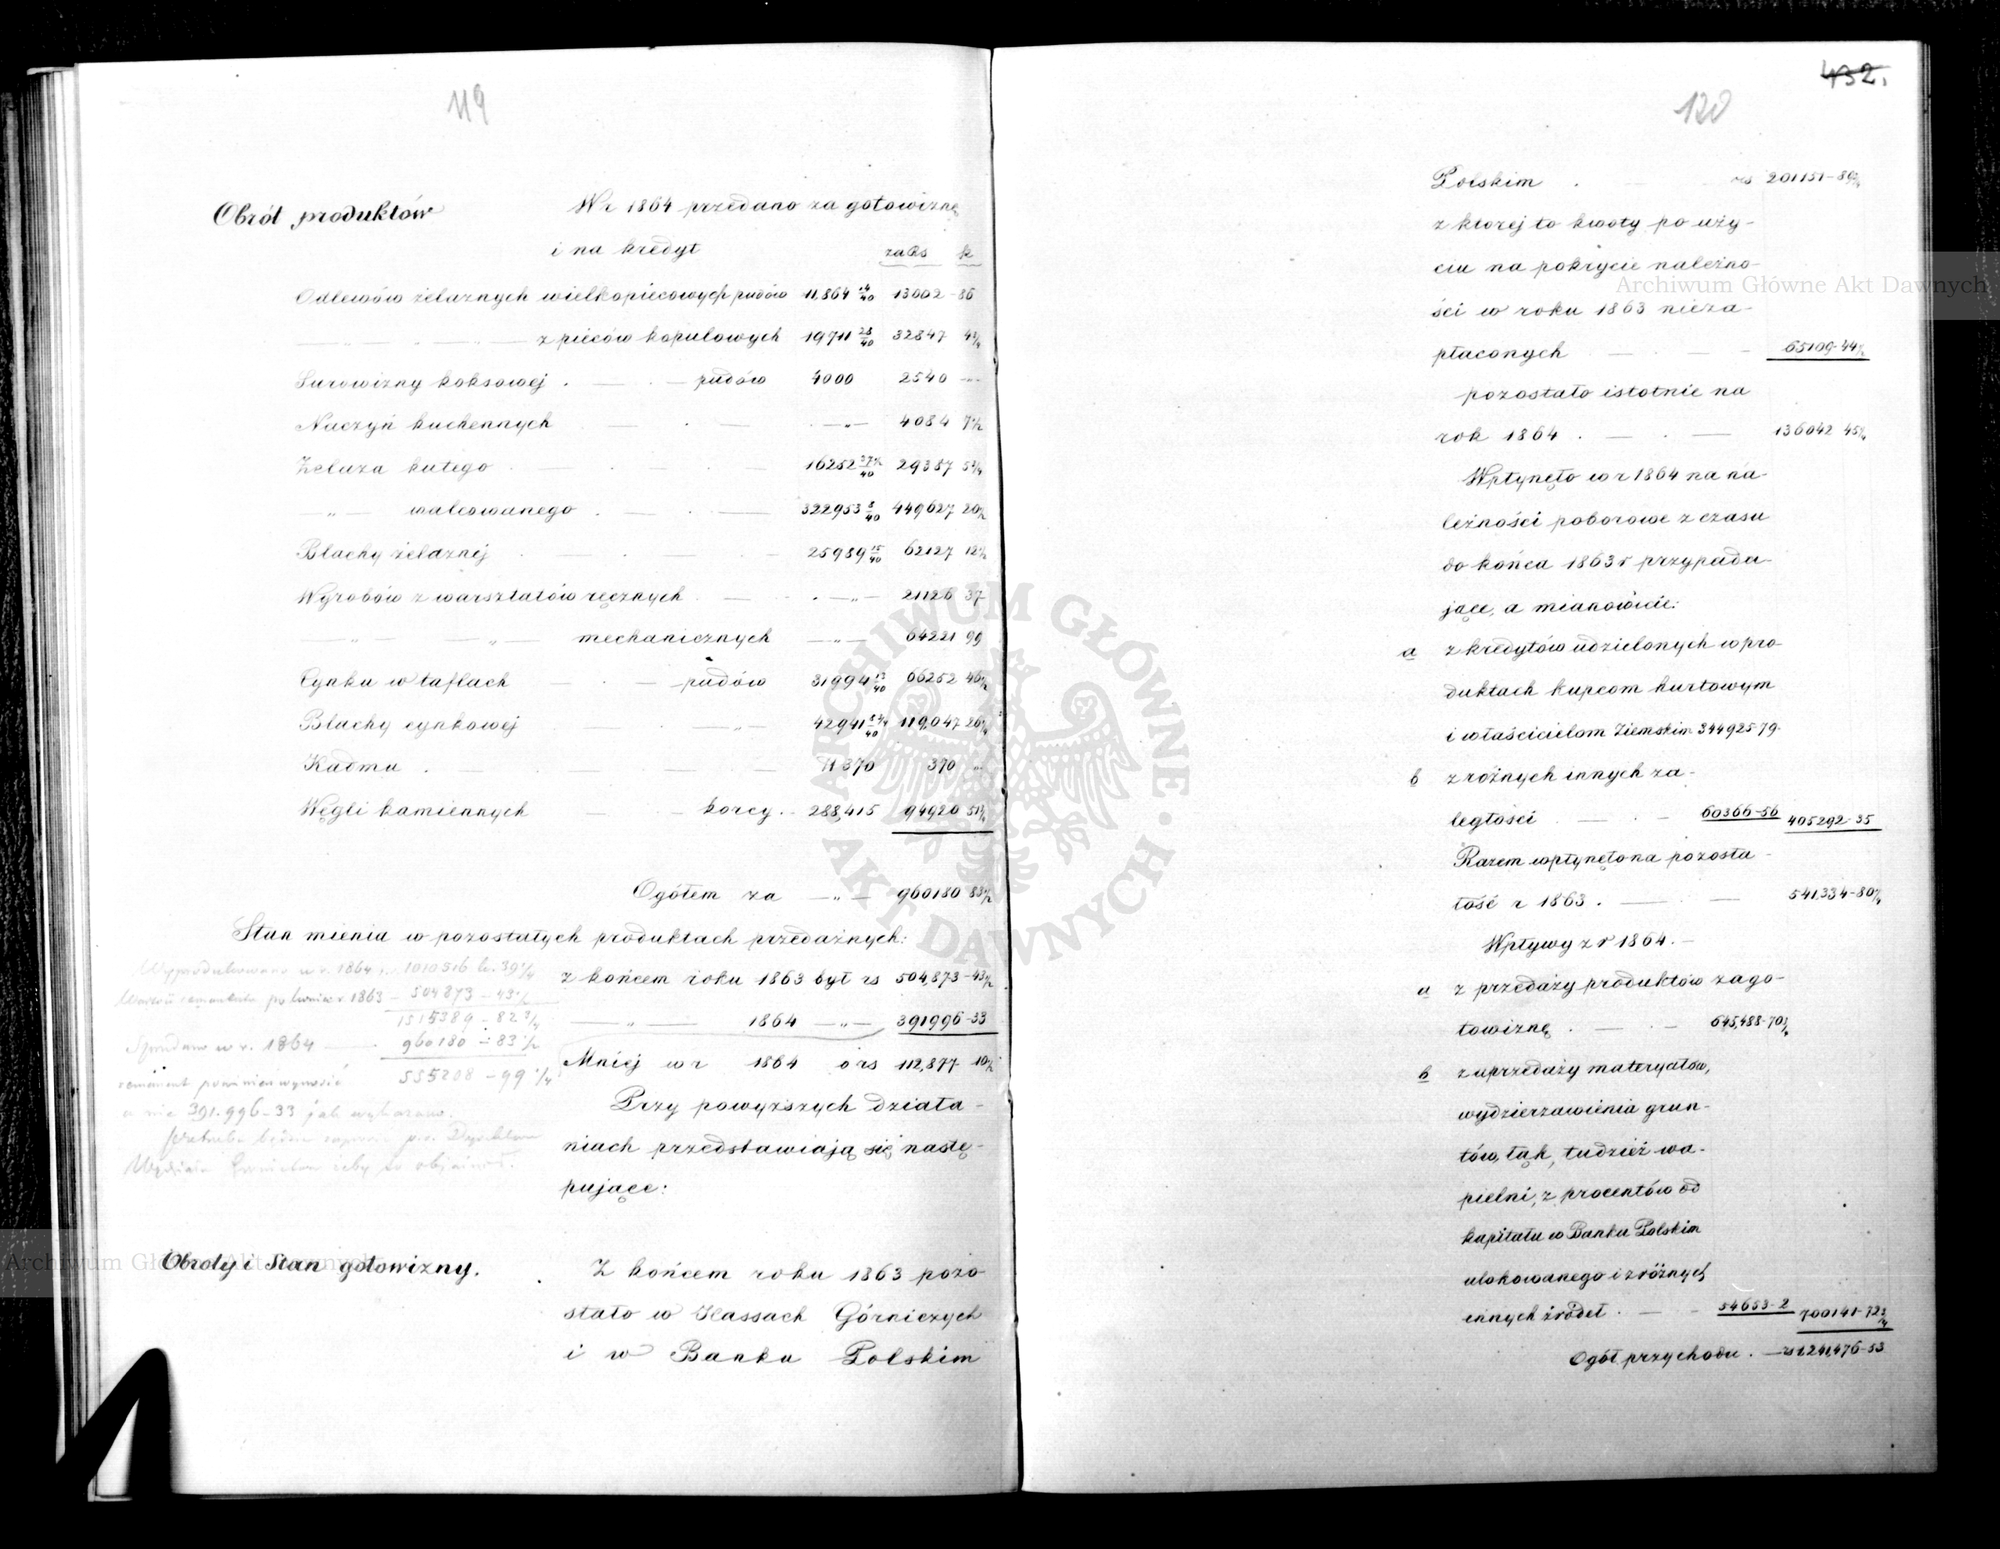 119
Obrót produktów
W r 1864 przedano za gotowiznę
i na kredyt za Rs k
Odlewów żelaznych wielkopiecowych pudów 11,864 14/40 13002 - 86
— „ — „ — z pieców kopulowych 19711 23/40 32847 4 3/4
Surowizny koksowej . — pudów 4000 2540 —
Naczyń kuchennych — . — . — „ — 4084 7 1/2
Żelaza kutego . — 16252 37 1/2/40 29387 5 3/4
— „ — walcowanego . — . — 322953 8/40 449627 20 1/2
Blachy żelaznej . — 25989 15/40 62127 12 1/2
Wyrobów z warsztatów ręcznych — . — „ — 21126 37
— „ — „ — mechanicznych — „ — 64221 99
Cynku w taflach — . — pudów 31994 13/40 66252 46 1/2
Blachy cynkowej — „ — 42941 119,047 26 3/4
Kadmu . — 370 „
Węgli kamiennych — korcy . 288,415 94920 51 3/4
Ogółem za — „ — 960180 83 1/2
Stan mienia w pozostałych produktach przedażnych:
z końcem roku 1863 był rs 504,873 - 43 1/2
— „ — 1864 — „ — 391996 - 33
Mniej w r 1864 o rs 112,877 10 1/2
Przy powyższych działa-
niach przedstawiają się nastę-
pujące:
Wyprodukowano w r. 1864 r. 1010516 k. 39 1/4
remanentu 1863 — 504873 — 43 1/2
1515389 — 82 3/4
Sprzedano w r. 1864 — 960180 — 83 1/2
remanent powinien wynosić 555208 — 99 1/4
a nie 391.996 - 33 jak wykazano.
Obroty i Stan gotowizny.
Z końcem roku 1863 pozo
stało w Kassach Górniczych
i w Banku Polskim
432.
120
Polskim . — rs 201151 - 89 3/4
z której to kwoty po uży-
ciu na pokrycie należno-
ści w roku 1863 nieza-
płaconych — 65109 - 44 1/2
pozostało istotnie na
rok 1864 . — . — 136042 45 1/4
Wpłynęło w r 1864 na na-
leżności poborowe z czasu
do końca 1863 r przypada-
jące, a mianowicie:
a z kredytów udzielonych w pro
duktach kupcom hurtowym
i właścicielom Ziemskim 344925-79.
b z różnych innych za-
ległości — . - 60366-56 405292-35
Razem wpłynęło na pozosta-
łość z 1863 . — 541,334-80 1/4
Wpływy z r 1864. —
a z przedaży produktów za go-
towiznę . — 645,488-70 3/4
b z uprzedaży materyałów,
wydzierżawienia grun-
tów, łąk, tudzież wa-
pielni, z procentów od
kapitału w Banku Polskim
ulokowanego i z różnych
innych źródeł . — 54653-2 700141-72 3/4
Ogół przychodu . — rs 1.241,476-53
Archiwum Główne Akt Dawnych
Archiwum Główne Akt Dawnych
ARCHIWUM GŁÓWNE · AKT DAWNYCH ·